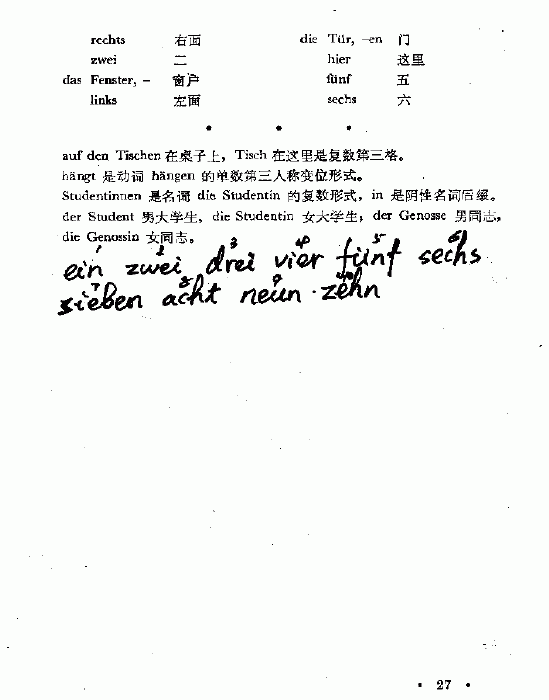 rechts 右面 die Tür, -en 门
zwei 二 hier 这里
das Fenster, - 窗户 fünf 五
links 左面 sechs 六
• • •
auf den Tischen 在桌子上，Tisch 在这里是复数第三格。
hängt 是动词 hängen 的单数第三人称变位形式。
Studentinnen 是名词 die Studentin 的复数形式，in 是阴性名词后缀。
der Student 男大学生，die Studentin 女大学生；der Genosse 男同志，
die Genossin 女同志。
1 2 3 4 5 6
ein zwei drei vier fünf sechs
7 8 9 10
sieben acht neun zehn
• 27 •